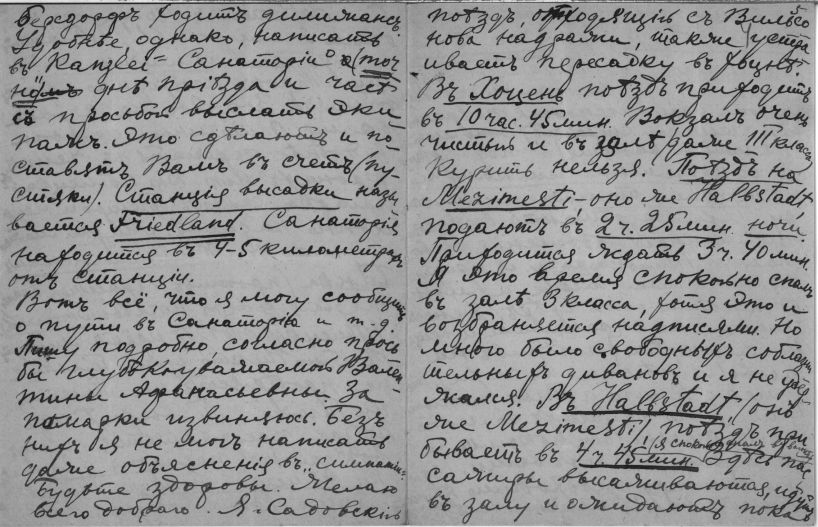 Берсдорфъ ходитъ дилижансъ.
Удобнѣе, однако, написать
въ Kanzlei Санаторіи о (точ
номъ) днѣ пріѣзда и часѣ
съ просьбой выслать эки
пажъ. Это сдѣлаютъ и по-
ставятъ Вамъ въ счетъ (пу-
стяки). Станція высадки назы
вается Friedland. Санаторія
находится въ 4-5 километрахъ
отъ станціи.
Вотъ всё, что я могу сообщить
о пути въ Санаторію и т. д.
Пишу подробно, согласно прось
бы глубокоуважаемой Вален
тины Афанасьевны. За
помарки извиняюсь. Безъ
нихъ я не могъ написать
даже объясненія въ „симпатіи“.
Будьте здоровы. Желаю
всего доброго. Я. Садовскій
поѣздъ, отходящій съ Вильсо
нова надражи, также устра
иваетъ пересадку въ Хоценѣ.
Въ Хоцень поѣздъ приходитъ
въ 10 час. 45 мин. Вокзалъ очень
чистый и въ залѣ даже III класса
курить нельзя. Поѣздъ на
Mezimesti, - оно же Halbstadt,
подаютъ въ 2 ч. 25 мин. ночи.
Приходится ждать 3 ч. 40 мин.
Я это время спокойно спалъ
въ залѣ 3 класса, хотя это и
возбраняется надписями. Но
много было свободныхъ соблазни
тельныхъ дивановъ и я не удер
жался. Въ Halbstadt, (оно
же Mezimesti) поѣздъ при
(я спокойно спалъ
бываетъ въ 4 ч 45 мин. Здѣсь пас
сажиры высаживаются, идутъ
въ залу и ожидаютъ пока